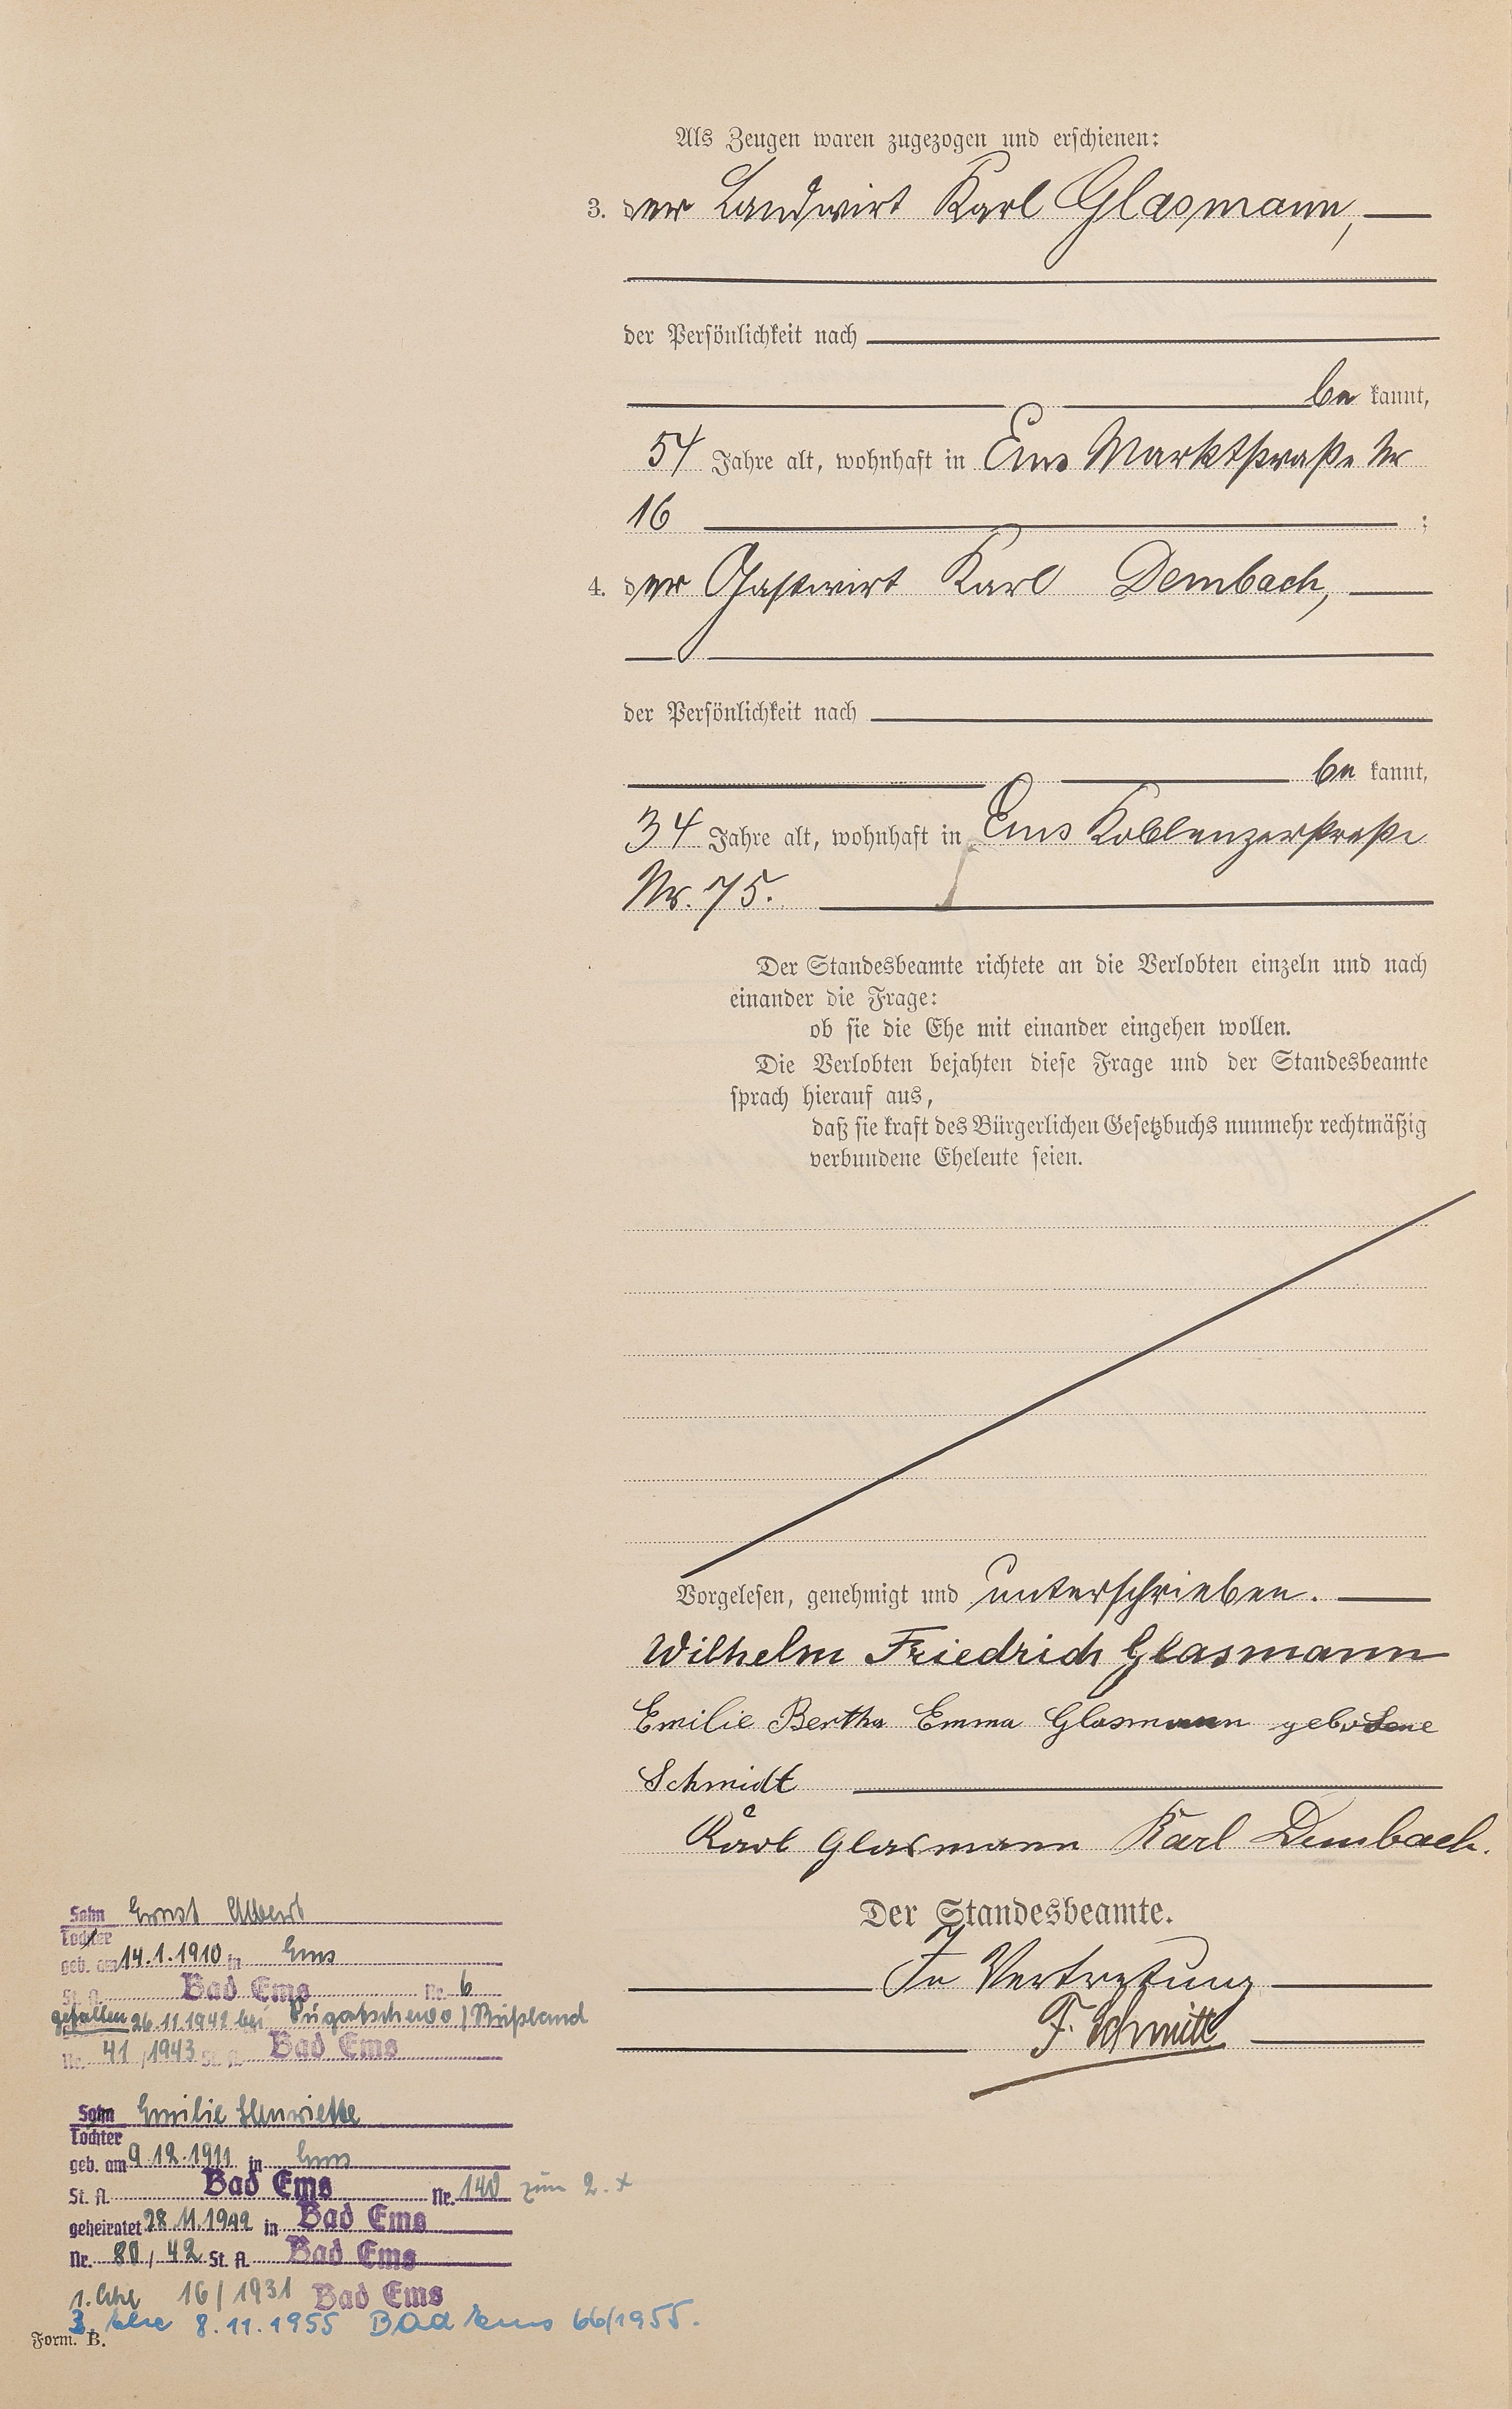 Als Zeugen waren zugezogen und erschienen:
3. der Landwirt Karl Glasmann,
der Persönlichkeit nach
be kannt,
54 Jahre alt, wohnhaft in Ems Marktstraße Nr
16 ;
4. der Gastwirt Karl Dembach,
der Persönlichkeit nach
be kannt,
34 Jahre alt, wohnhaft in Ems Koblenzerstraße
Nr. 75.
Der Standesbeamte richtete an die Verlobten einzeln und nach
einander die Frage:
ob sie die Ehe mit einander eingehen wollen.
Die Verlobten bejahten diese Frage und der Standesbeamte
sprach hierauf aus,
daß sie kraft des Bürgerlichen Gesetzbuchs nunmehr rechtmäßig
verbundene Eheleute seien.
Vorgelesen, genehmigt und unterschrieben.
Wilhelm Friedrich Glasmann
Emilie Bertha Emma Glasmann geborene
Schmidt
Karl Glasmann Karl Dembach.
Der Standesbeamte.
In Vertretung
F. Schmitt
Sohn Ernst Albert
Tochter
geb. am 14.1.1910 in Ems
St. A. Bad Ems Nr. 6
gefallen 26.11.1942 bei Pugatschewo / Rußland
Nr. 41 / 1943 St. A. Bad Ems
Sohn Emilie Henriette
Tochter
geb. am 9.12.1911 in Ems
St. A. Bad Ems Nr. 140 zum 2. x
geheiratet 28.11.1942 in Bad Ems
Nr. 80 / 42 St. A. Bad Ems
1. Ehe 16/1931 Bad Ems
3. Ehe 8.11.1955 Bad Ems 66/1955.
Form. B.